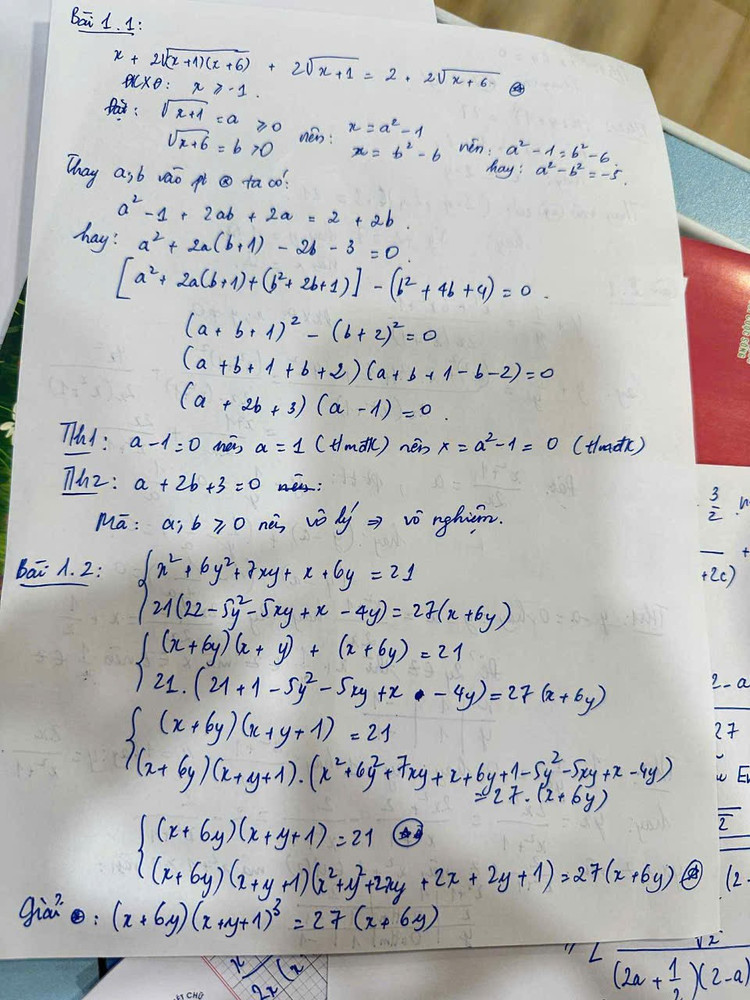 Bài 1.1:
x + 2√(x+1)(x+6) + 2√x+1 = 2 + 2√x+6 ⊛
ĐKXĐ: x ≥ -1.
Đặt: √x+1 = a ≥ 0
√x+6 = b > 0 nên: x = a² - 1
x = b² - 6 nên: a² - 1 = b² - 6.
hay: a² - b² = -5.
Thay a, b vào pt ⊛ ta có:
a² - 1 + 2ab + 2a = 2 + 2b.
hay: a² + 2a(b+1) - 2b - 3 = 0.
[a² + 2a(b+1) + (b² + 2b + 1)] - (b² + 4b + 4) = 0.
(a + b + 1)² - (b + 2)² = 0
(a + b + 1 + b + 2)(a + b + 1 - b - 2) = 0
(a + 2b + 3)(a - 1) = 0.
Th1: a - 1 = 0 nên a = 1 (tmđk) nên x = a² - 1 = 0 (tmđk)
Th2: a + 2b + 3 = 0
Mà: a; b ≥ 0 nên vô lý ⇒ vô nghiệm.
Bài 1.2: { x² + 6y² + 7xy + x + 6y = 21
21(22 - 5y² - 5xy + x - 4y) = 27(x + 6y)
{ (x + 6y)(x + y) + (x + 6y) = 21
21.(21 + 1 - 5y² - 5xy + x - 4y) = 27(x + 6y)
{ (x + 6y)(x + y + 1) = 21
(x + 6y)(x + y + 1).(x² + 6y² + 7xy + x + 6y + 1 - 5y² - 5xy + x - 4y)
= 27.(x + 6y)
{ (x + 6y)(x + y + 1) = 21
(x + 6y)(x + y + 1)(x² + y² + 2xy + 2x + 2y + 1) = 27(x + 6y) ⊛
Giải ⊛: (x + 6y)(x + y + 1)³ = 27(x + 6y)
3/2
+ 2c)
2 - a
27
√2
(2 -
√x
(2a + 1/2)(2 - a)